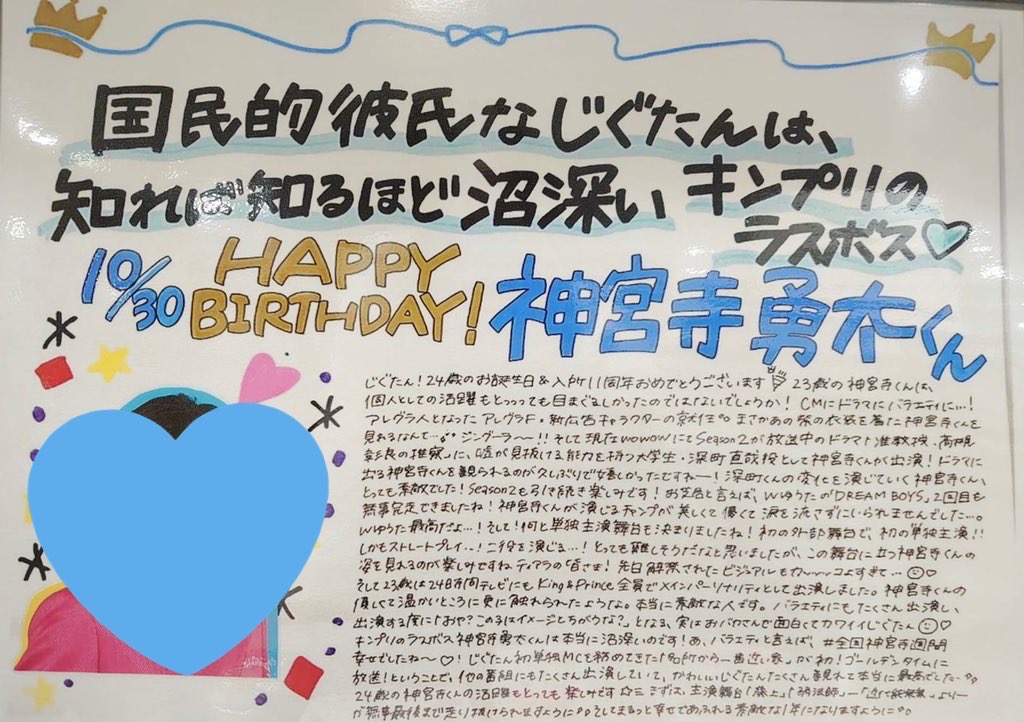 国民的彼氏なじぐたんは、
知れば知るほど沼深い キンプリの
ラスボス♡
10/30 HAPPY BIRTHDAY! 神宮寺勇太くん
じぐたん!24歳のお誕生日&入所11周年おめでとうございます 23歳の神宮寺くんは、
個人としての活躍もとっっっても目まぐるしかったのではないでしょうか! CMにドラマにバラエティに…!
アレグラ人となったアレグラF・新広告キャラクターの就任 まさかあの紫の衣装を着た神宮寺くんを
見れるなんて… ジングーラ〜!!そして現在wowowにてSeason2が放送中のドラマ「准教授・高槻
彰良の推察」に、嘘が見抜ける能力を持つ大学生・深町直哉役として神宮寺くんが出演!ドラマに
出る神宮寺くんを観られるのが久しぶりで嬉しかったですねー!深町くんの変化を演じていく神宮寺くん、
とっても素敵でした!Season2も引き続き楽しみです!お芝居と言えば、Wゆうたの「DREAM BOYS」2回目も
無事完走できましたね!神宮寺くんが演じるチャンプが美しくて儚くて涙を流さずにいられませんでした…。
Wゆうた最高だよ…!そして!何と単独主演舞台も決まりましたね!初の外部舞台で、初の単独主演!!
しかもストレートプレイ…!二役を演じる…!とっても難しそうだなと思いましたが、この舞台に立つ神宮寺くんの
姿を見れるのが楽しみですね ティアラの皆さま!先日解禁されたビジュアルもカッコよすぎて…♡
そして23歳は24時間テレビにもKing&Prince全員でメインパーソナリティとして出演しました。神宮寺くんの
優しくて温かいところに更に触れられたような。本当に素敵な人です。バラエティにもたくさん出演し、
出演する度に「おや?この子はイメージとちがうな?」となる、実はおバカさんで面白くてカワイイじぐたん♡
キンプリのラスボス神宮寺勇太くんは本当に沼深いのです!あ、バラエティと言えば、#全国神宮寺週間
幸せでしたね〜♡!じぐたん初単独MCを務めてきた「名所から一番近い家」が初!ゴールデンタイムに
放送!ということで、他の番組にもたくさん出演していて、かわいいじぐたんたくさん観れて本当に最高でした
24歳の神宮寺くんの活躍もとっても楽しみです☆ミ まずは、主演舞台「葵上」「弱法師」ー「近代能楽集」よりー
が無事最後まで走り抜けられますように そしてまるっと幸せであふれる素敵な1年になりますように